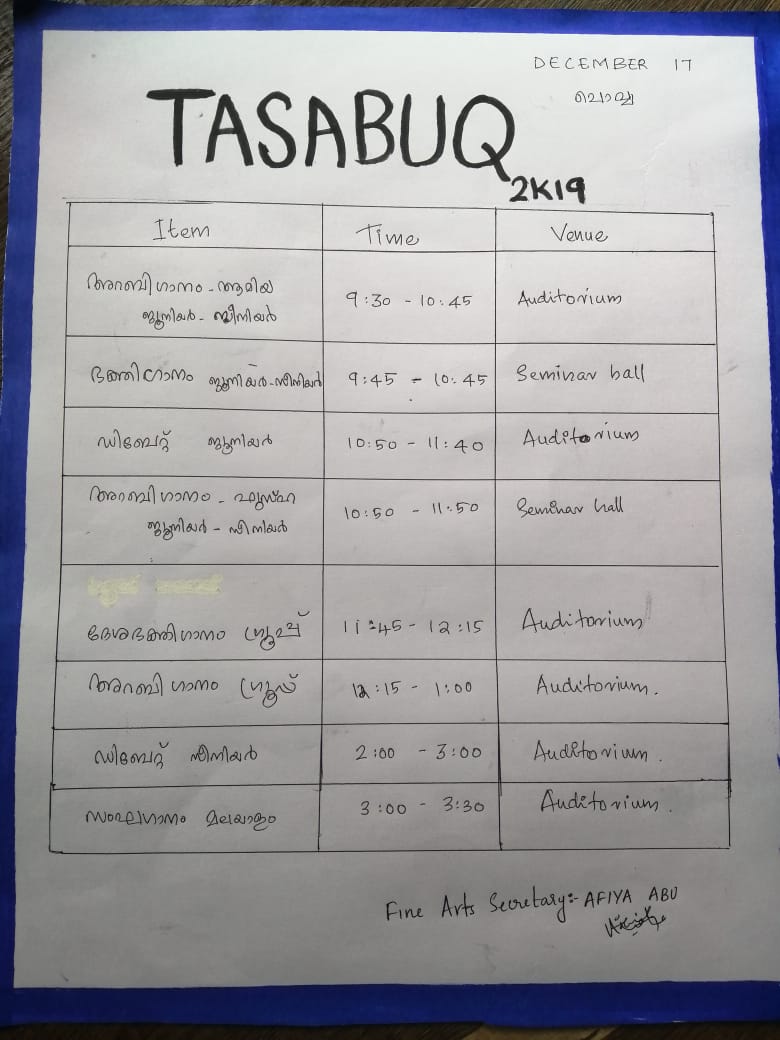 DECEMBER 17
ചൊവ്വ
TASABUQ
2K19
Item Time Venue
അറബിഗാനം - ആമിയ
ജൂനിയർ - സീനിയർ
9:30 - 10:45 Auditorium
ഭക്തിഗാനം ജൂനിയർ-സീനിയർ 9:45 - 10:45 Seminar hall
ഡിബേറ്റ് ജൂനിയർ 10:50 - 11:40 Auditorium
അറബിഗാനം - ഫുസ്ഹ
ജൂനിയർ - സീനിയർ
10:50 - 11:50 Seminar hall
ദേശഭക്തിഗാനം ഗ്രൂപ്പ് 11:45 - 12:15 Auditorium
അറബി ഗാനം ഗ്രൂപ്പ് 12:15 - 1:00 Auditorium.
ഡിബേറ്റ് സീനിയർ 2:00 - 3:00 Auditorium.
സംഘഗാനം മലയാളം 3:00 - 3:30 Auditorium.
Fine Arts Secretary:- AFIYA ABU